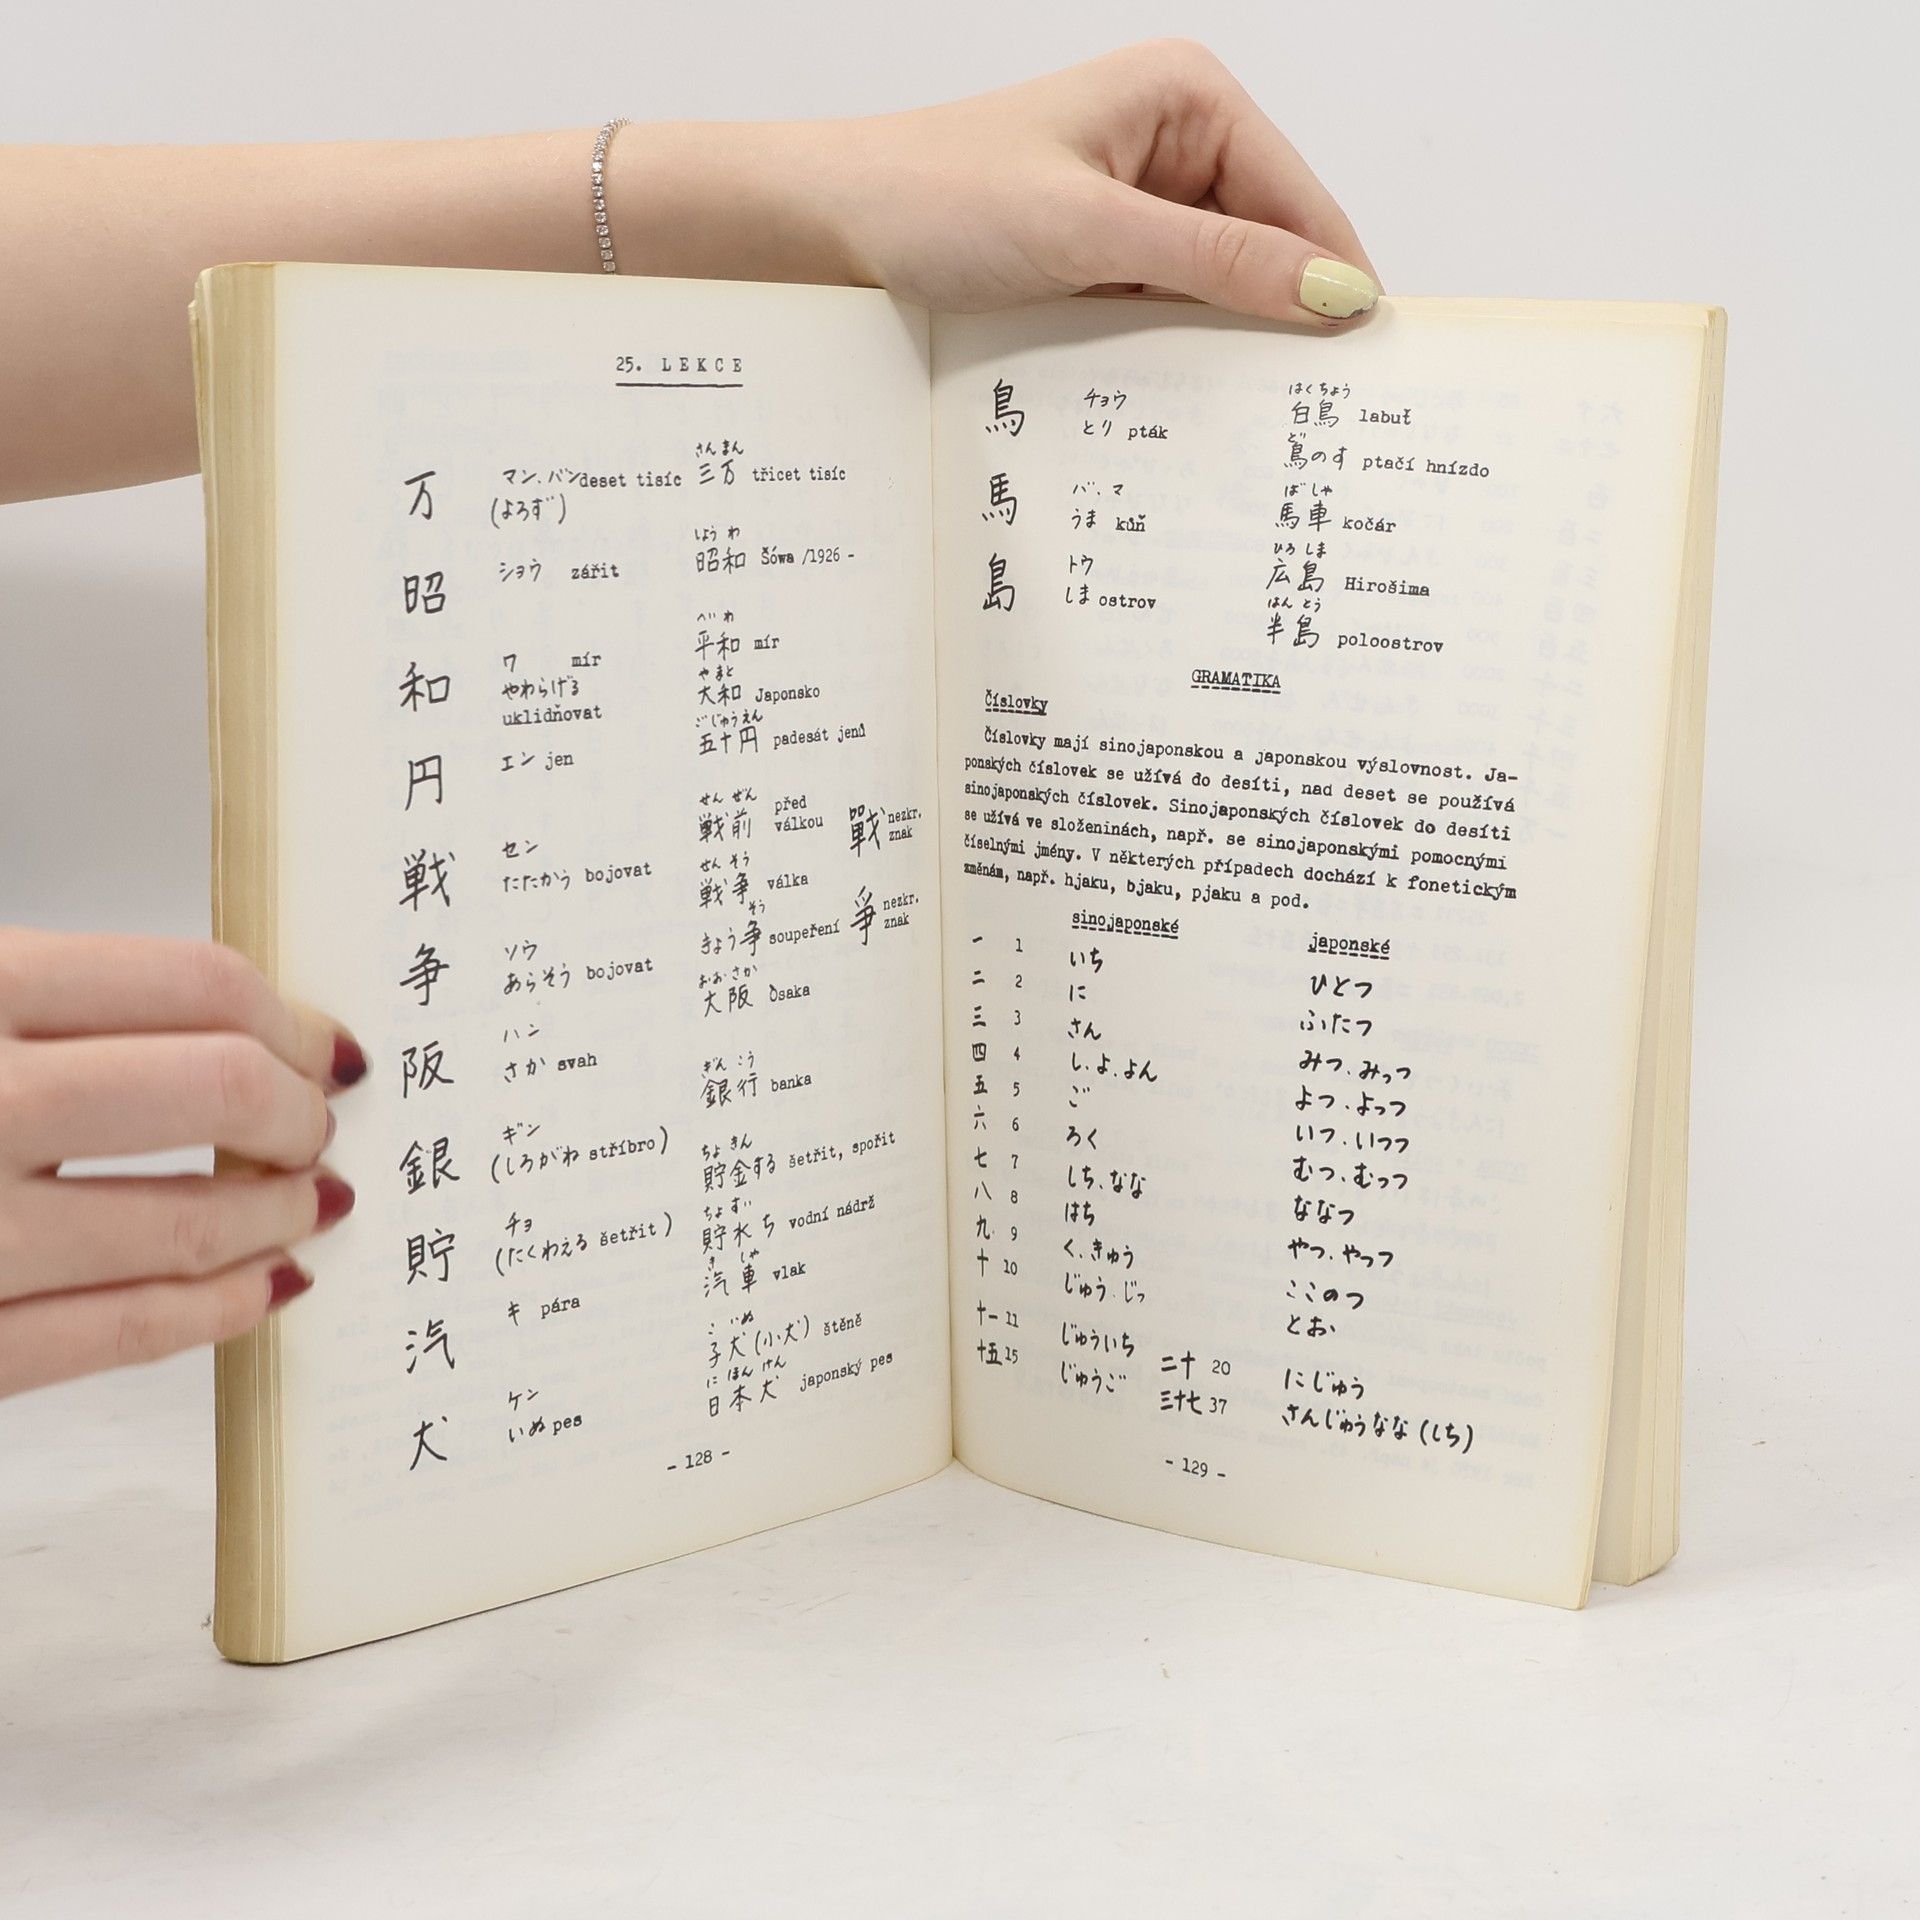 25. LEKCE
万 マン、バン deset tisíc 三万 třicet tisíc
さんまん
(よろず)
昭 ショウ zářit 昭和 Šówa /1926 -
しょうわ
和 ワ mír 平和 mír
へいわ
やわらげる 大和 Japonsko
やまと
uklidňovat
円 エン jen 五十円 padesát jenů
ごじゅうえん
戦 セン 戦前 před válkou 戰 nezkr. znak
せんぜん
たたかう bojovat 戦争 válka
せんそう
争 ソウ きょう争 soupeření 爭 nezkr. znak
そう
あらそう bojovat
阪 ハン 大阪 Ósaka
おおさか
さか svah
銀 ギン 銀行 banka
ぎんこう
(しろがね stříbro)
貯 チョ 貯金する šetřit, spořit
ちょきん
(たくわえる šetřit) 貯水ち vodní nádrž
ちょすい
汽 キ pára 汽車 vlak
きしゃ
犬 ケン 子犬(小犬) štěně
こいぬ
いぬ pes 日本犬 japonský pes
にほんけん
- 128 -
鳥 チョウ 白鳥 labuť
はくちょう
とり pták 鳥のす ptačí hnízdo
とり
馬 バ、マ 馬車 kočár
ばしゃ
うま kůň
島 トウ 広島 Hirošima
ひろしま
しま ostrov 半島 poloostrov
はんとう
GRAMATIKA
Číslovky
Číslovky mají sinojaponskou a japonskou výslovnost. Ja-
ponských číslovek se užívá do desíti, nad deset se používá
sinojaponských číslovek. Sinojaponských číslovek do desíti
se užívá ve složeninách, např. se sinojaponskými pomocnými
číselnými jmény. V některých případech dochází k fonetickým
změnám, např. hjaku, bjaku, pjaku a pod.
sinojaponské japonské
一 1 いち ひとつ
二 2 に ふたつ
三 3 さん みつ、みっつ
四 4 し、よ、よん よつ、よっつ
五 5 ご いつ、いつつ
六 6 ろく むつ、むっつ
七 7 しち、なな ななつ
八 8 はち やつ、やっつ
九 9 く、きゅう ここのつ
十 10 じゅう、じっ とお
十一 11 じゅういち
十五 15 じゅうご
二十 20 にじゅう
三十七 37 さんじゅうなな(しち)
- 129 -